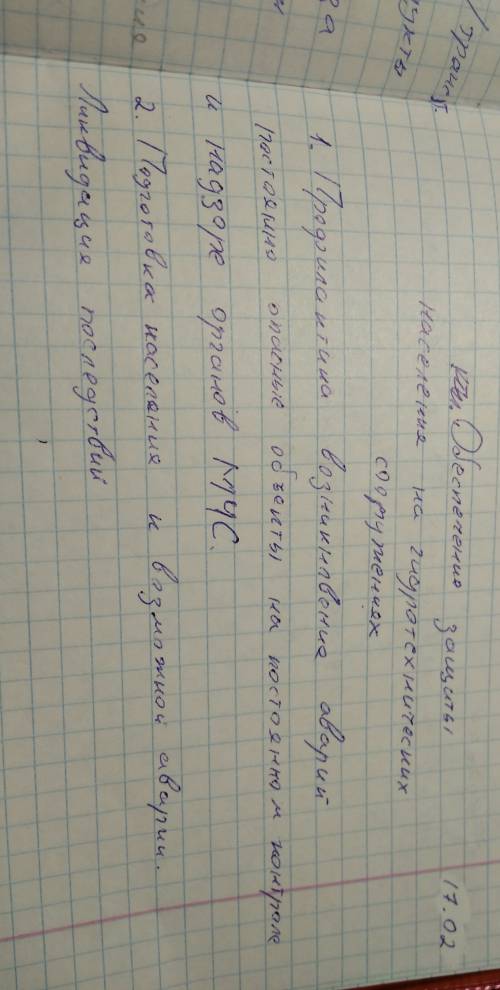 17.02
Обеспечение защиты
населения на гидротехнических
сооружениях
1. Профилактика возникновение аварий
постоянно опасные объекты на постоянном контроле
и надзоре органов МЧС.
2. Подготовка населения к возможной аварии.
Ликвидация последствий